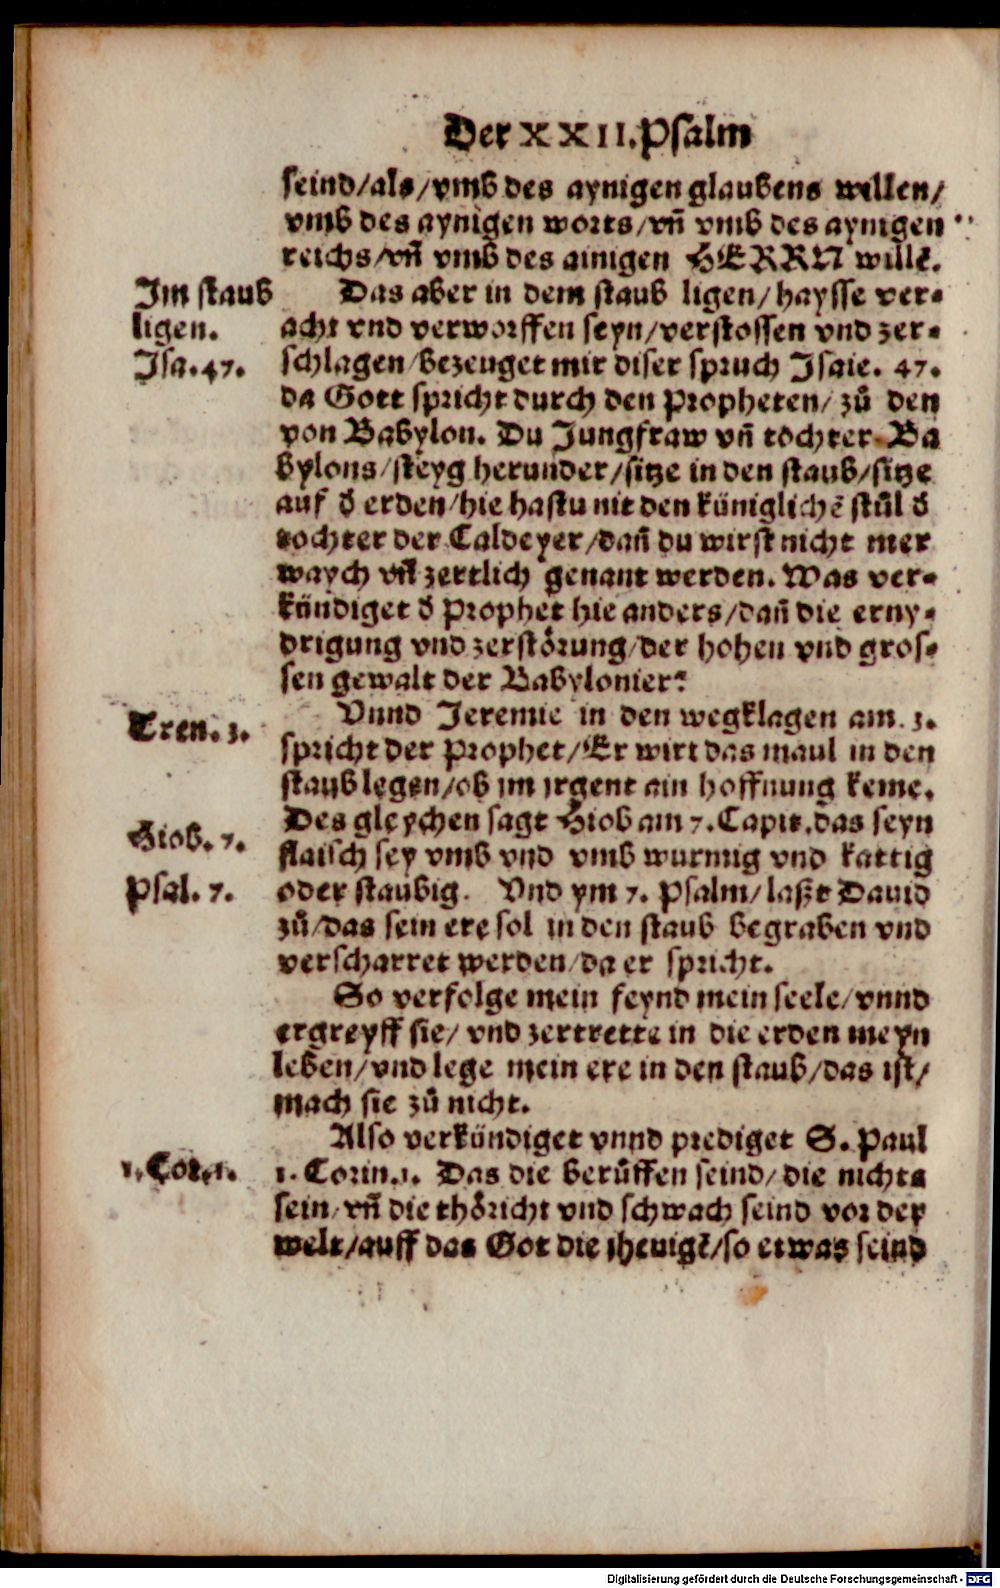 Der XXII. Psalm
seind/als/vmb des aynigen glaubens willen/
vmb des aynigen worts/vñ vmb des aynigen
reichs/vñ vmb des ainigen HERRN willẽ.
Im staub
ligen.
Isa. 47.
Das aber in dem staub ligen/haysse ver-
acht vnd verworffen seyn/verstossen vnd zer-
schlagen/bezeuget mir diser spruch Isaie. 47.
da Gott spricht durch den Propheten/zů den
von Babylon. Du Jungfraw vñ tochter Ba
bylons/steyg herunder/sitze in den staub/sitze
auf d̕ erden/hie hastu nit den küniglichẽ stůl d̕
tochter der Caldeyer/dañ du wirst nicht mer
waych vñ zertlich genant werden. Was ver-
kündiget d̕ Prophet hie anders/dañ die erny-
drigung vnd zerstörung/der hohen vnd gros-
sen gewalt der Babylonier?
Tren. 3.
Vnnd Jeremie in den wegklagen am. 3.
spricht der Prophet/Er wirt das maul in den
staub legen/ob im irgent ain hoffnung keme.
Hiob. 7.
Des gleychen sagt Hiob am 7. Capit. das seyn
flaisch sey vmb vnd vmb wurmig vnd kattig
Psal. 7.
oder staubig. Vnd ym 7. Psalm/laßt Dauid
zů/das sein ere sol in den staub begraben vnd
verscharret werden/da er spricht.
So verfolge mein feynd mein seele/vnnd
ergreyff sie/vnd zertrette in die erden meyn
leben/vnd lege mein ere in den staub/das ist/
mach sie zů nicht.
Also verkündiget vnnd prediget S. Paul
1. Cor. 1.
1. Corin. 1. Das die berůffen seind/die nichts
sein/vñ die thöricht vnd schwach seind vor der
welt/auff das Got die jhenigẽ/so etwas seind
Digitalisierung gefördert durch die Deutsche Forschungsgemeinschaft - DFG